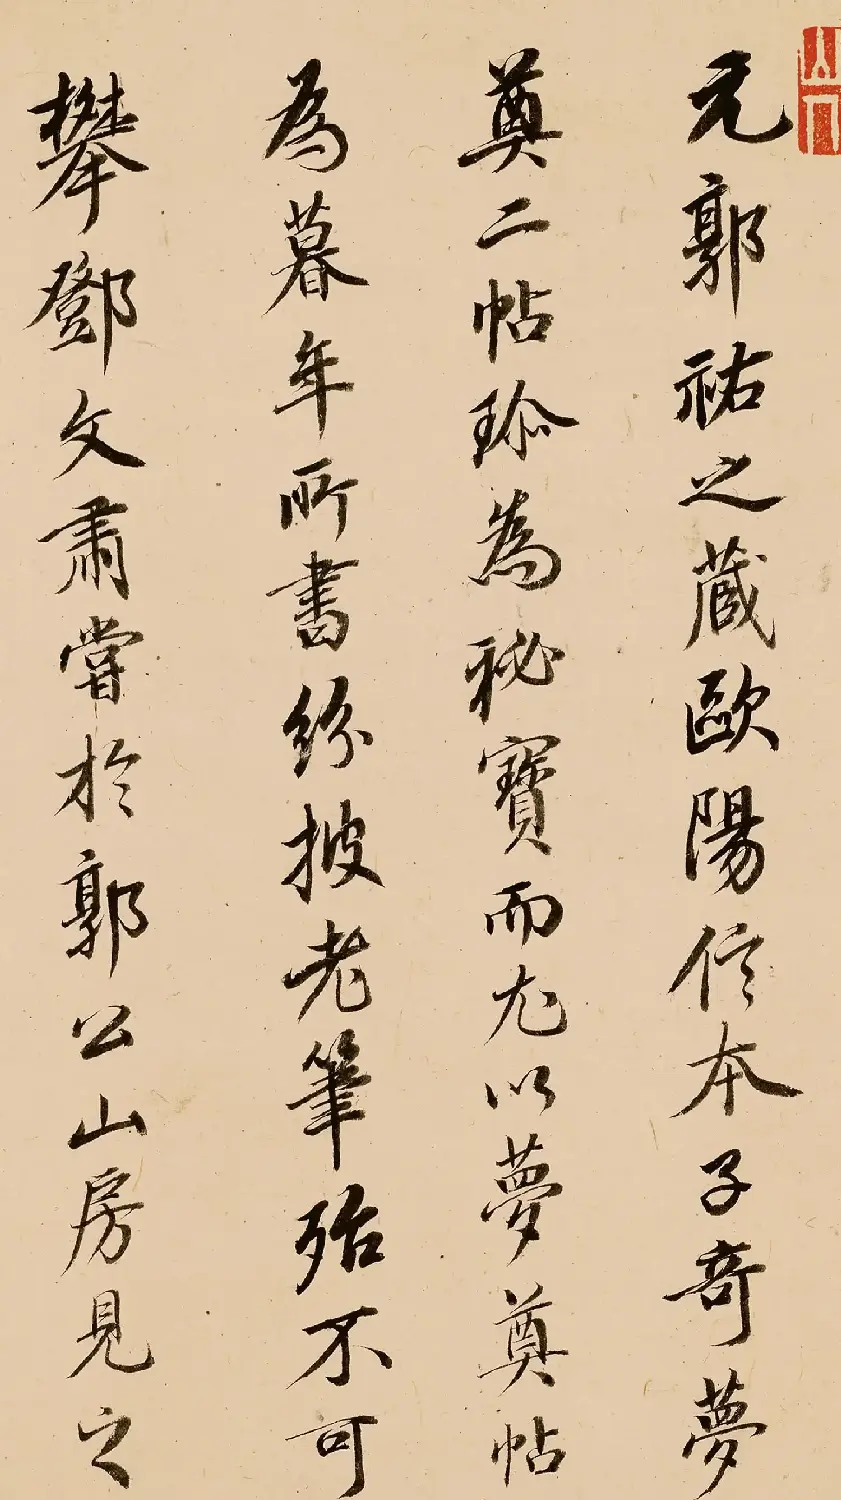 元郭祐之藏歐陽信本子奇夢
奠二帖珎為秘寶而尤以夢奠帖
為暮年所書紛披老筆殆不可
攀鄧文肅嘗於郭公山房見之